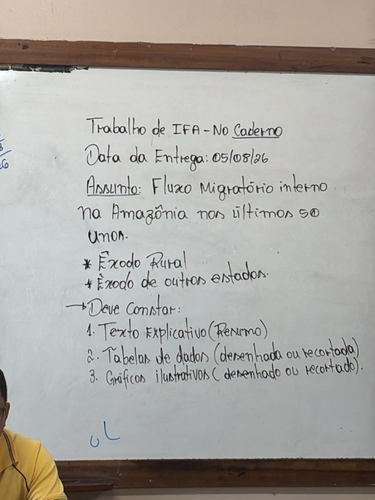 Trabalho de IFA - No Caderno
Data da Entrega: 05/08/26
Assunto: Fluxo Migratório interno
na Amazônia nos últimos 50
anos.
* Êxodo Rural
* Êxodo de outros estados.
→ Deve Constar:
1. Texto Explicativo (Resumo)
2. Tabelas de dados (desenhada ou recortada)
3. Gráficos ilustrativos (desenhado ou recortado).